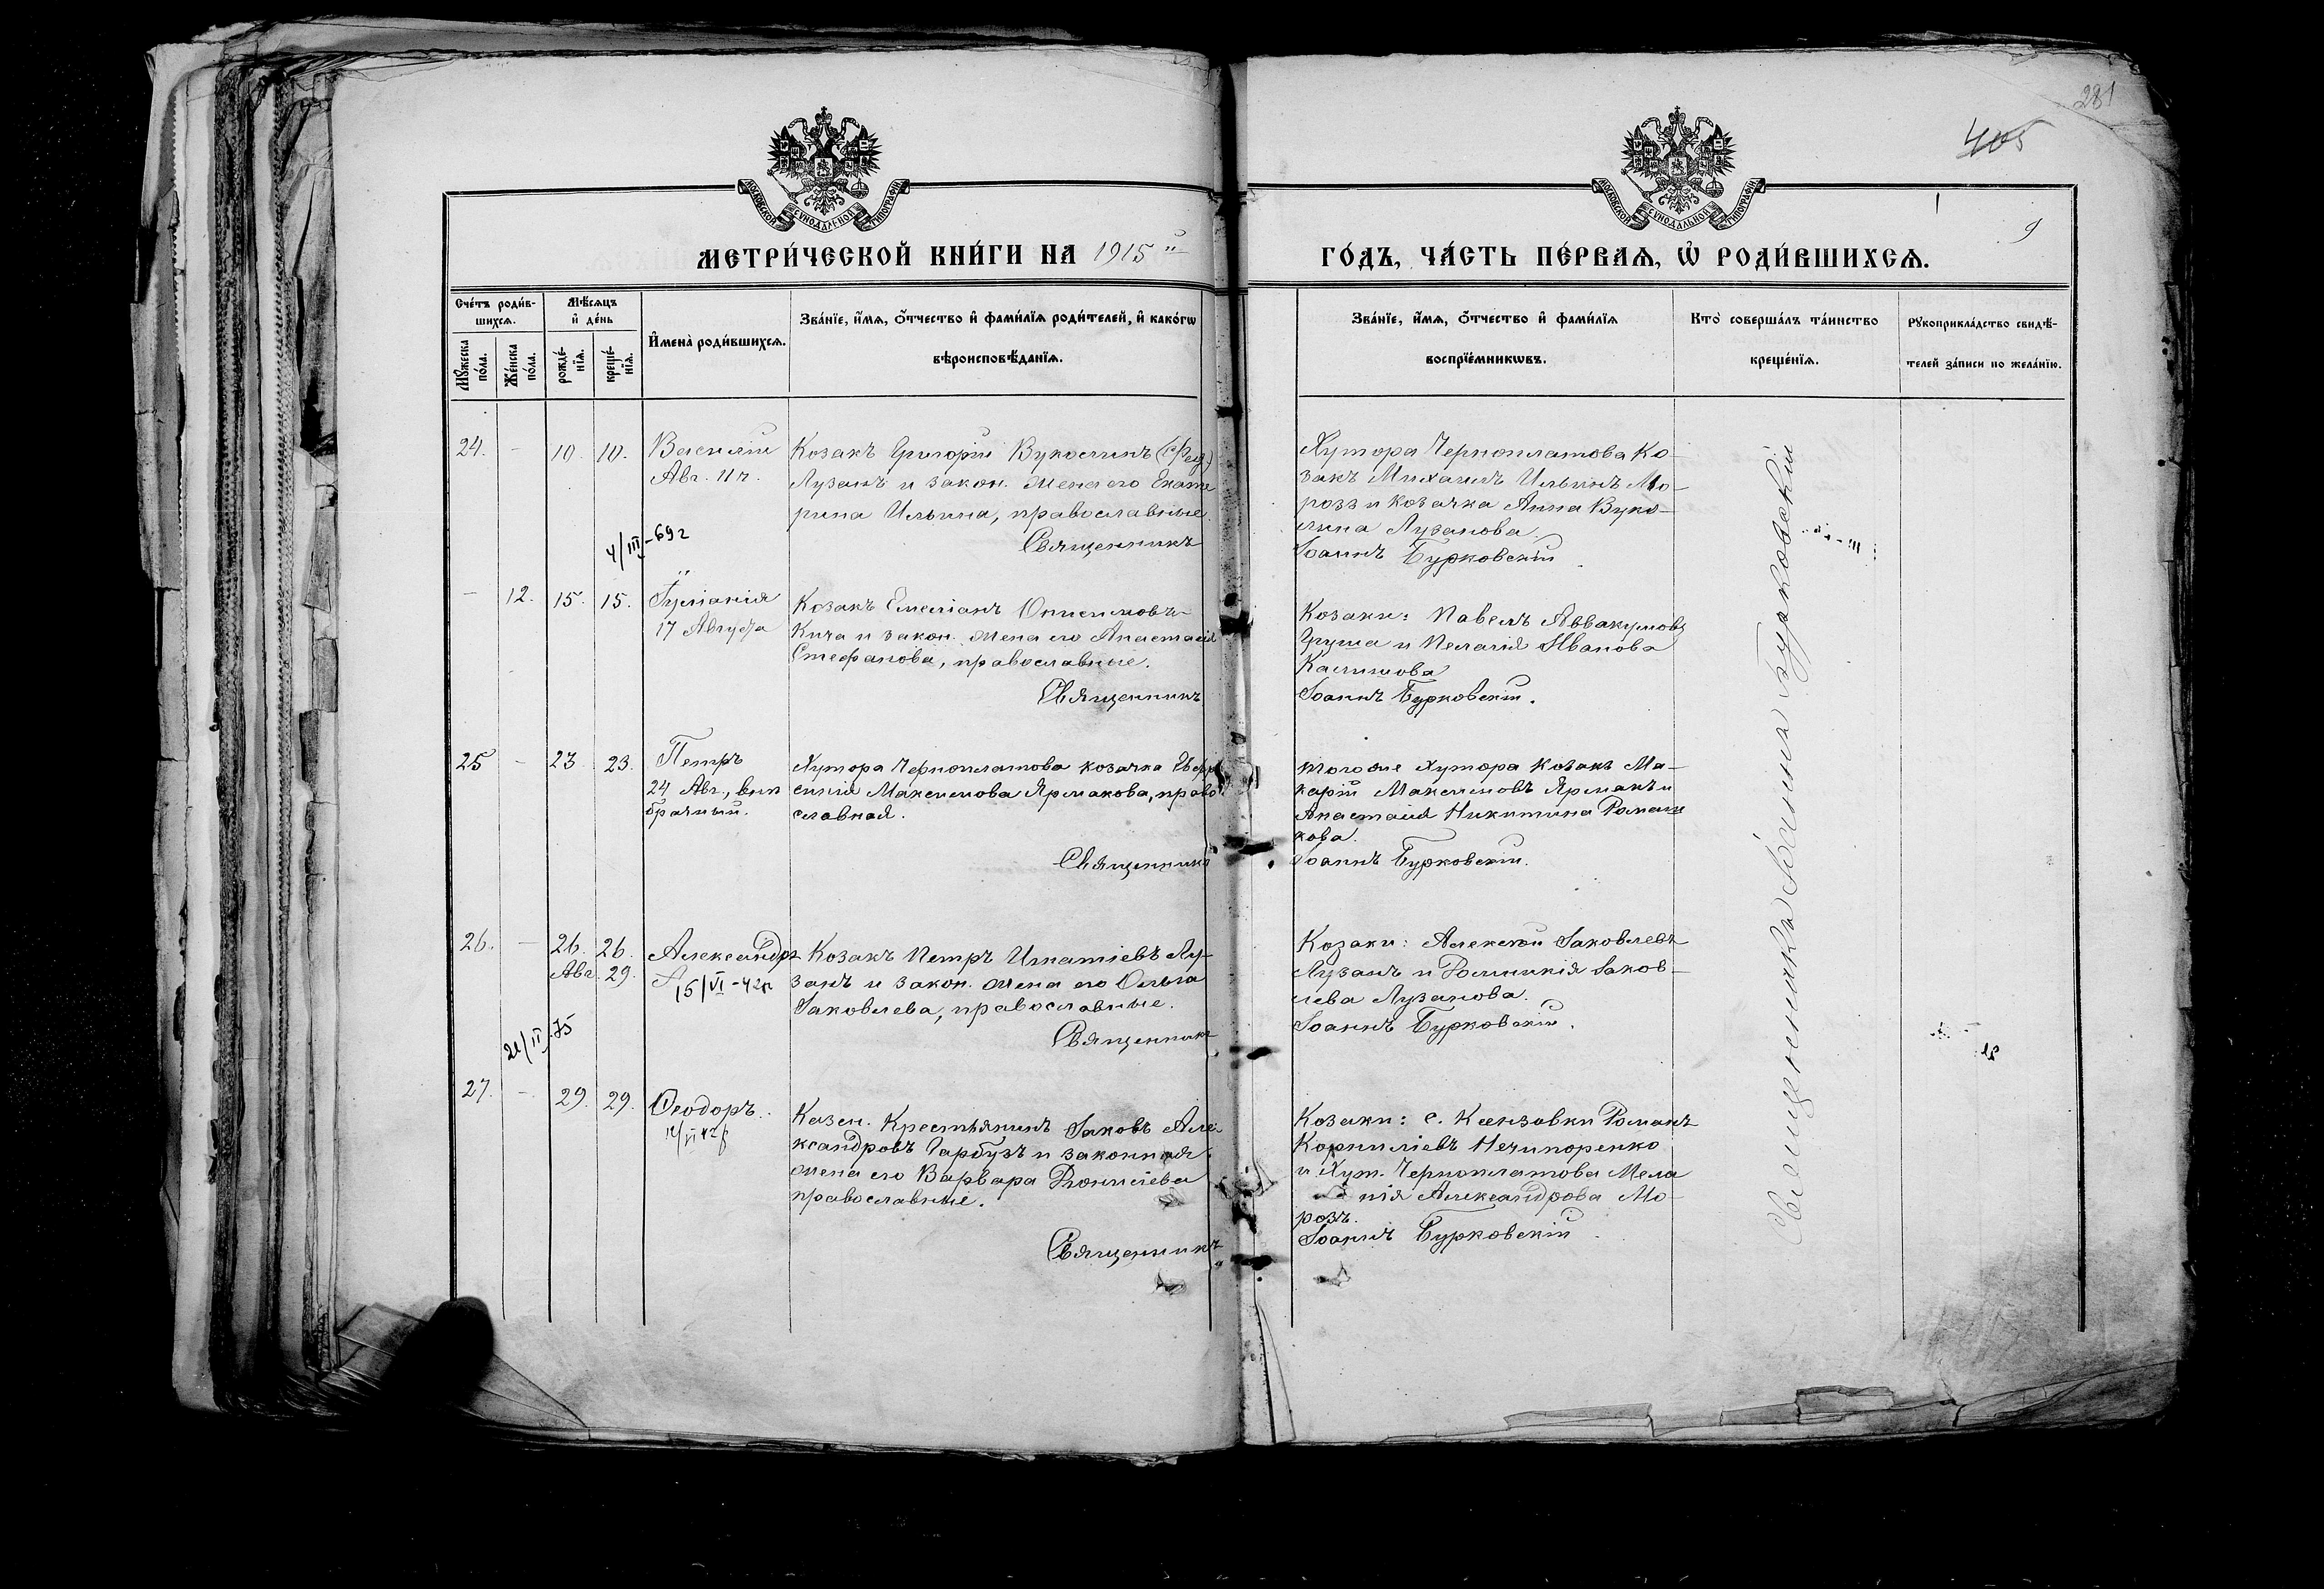 281
405
9
МОСКОВСКОЙ СѴНОДАЛЬНОЙ ТИПОГРАФІИ
МОСКОВСКОЙ СѴНОДАЛЬНОЙ ТИПОГРАФІИ
МЕТРИ́ЧЕСКОЙ КНИ́ГИ НА 1915 й
ГО́ДЪ, ЧА́СТЬ ПЕ́РВАѦ, Ѽ РОДИ́ВШИХСѦ.
Сче́тъ роди́в-
шихсѧ.
Мꙋ́жеска по́ла.
Же́нска по́ла.
Мѣ́сѧцъ
и҆ де́нь
рожде́-
нїѧ.
креще́-
нїѧ.
И҆мена̀ роди́вшихсѧ.
Зва́нїе, и҆́мѧ, ѻ҆́тчество и҆ фами́лїѧ роди́телей, и҆ како́гѡ
вѣроисповѣ́данїѧ.
Зва́нїе, и҆́мѧ, ѻ҆́тчество и҆ фами́лїѧ
воспрїе́мникѡвъ.
Кто̀ соверша́лъ та́инство
креще́нїѧ.
Рꙋкоприкла́дство свидѣ́-
телей за́писи по жела́нїю.
24. - 10. 10. Василій
Авг. 11 ч.
Козакъ Григорій Вуколинъ
Лузанъ и закон. жена его Екате
рина Ильина, православные.
Священникъ
Хутора Черноплатова Ко-
закъ Михаилъ Ильинъ Мо-
розъ и козачка Анна Вуко-
лина Лузанова.
Іоаннъ Бурковскій
4/III-69 г
- 12. 15. 15. Іуліанія
17 Августа
Козакъ Емеліанъ Онисимовъ
Кича и закон. жена его Анастасія
Стефанова, православные.
Священникъ
Козаки: Павелъ Аввакумовъ
Груша и Пелагія Иванова
Іоаннъ Бурковскій.
25 - 23 23. Петръ
24 Авг., вне
брачный.
Хутора Черноплатова козачка
Максимова Ярмакова, право
славная.
Священникъ
тогоже хутора козакъ Ма-
карій Максимовъ Ярмакъ и
Анастасія Никитина
кова.
Іоаннъ Бурковскій.
26. - 26. 26. Александръ
Авг. 29.
15/VI-42 г
Козакъ Петръ Игнатіевъ Лу-
занъ и закон. жена его Ольга
Іаковлева, православные.
Священникъ
Козаки: Алексій Іаковлевъ
Лузанъ и Домникія Іаков-
лева Лузанова.
Іоаннъ Бурковскій.
21/II-75
27. - 29. 29. Ѳеодоръ.
Казен. Крестьянинъ Іаковъ Але
ксандровъ Гарбузъ и законная
жена его Варвара
православные.
Священникъ
Козаки: с. Романъ
Корниліевъ Нечипоренко
и Хут. Черноплатова Мела
нія Александрова Мо-
розъ.
Іоаннъ Бурковскій
Священникъ Іоаннъ Бурковскій